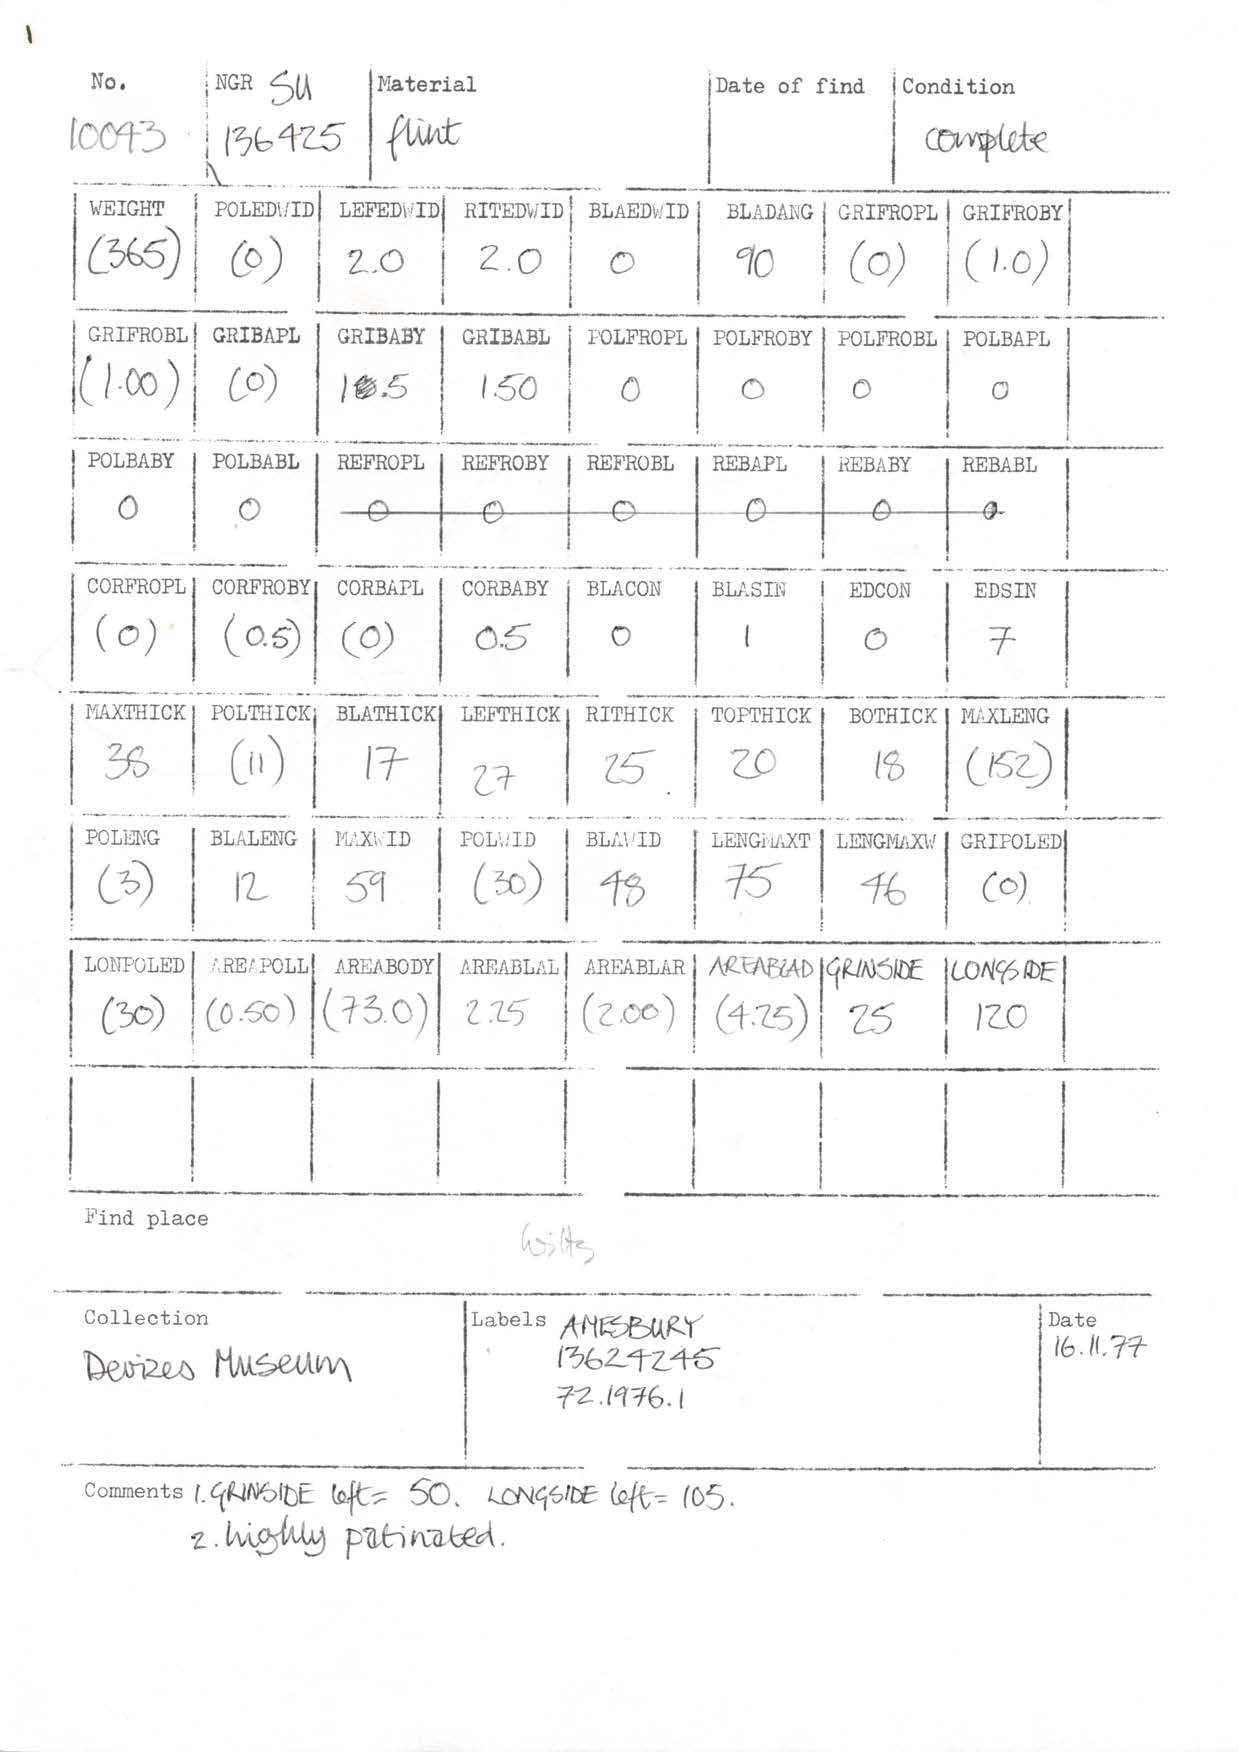 1
No. NGR SU Material Date of find Condition
10043 136425 flint complete
WEIGHT POLEDWID LEFEDWID RITEDWID BLAEDWID BLADANG GRIFROPL GRIFROBY
(365) (0) 2.0 2.0 0 90 (0) (1.0)
GRIFROBL GRIBAPL GRIBABY GRIBABL POLFROPL POLFROBY POLFROBL POLBAPL
(1.00) (0) 1.5 1.50 0 0 0 0
POLBABY POLBABL REFROPL REFROBY REFROBL REBAPL REBABY REBABL
0 0 0 0 0 0 0 0
CORFROPL CORFROBY CORBAPL CORBABY BLACON BLASIN EDCON EDSIN
(0) (0.5) (0) 0.5 0 1 0 7
MAXTHICK POLTHICK BLATHICK LEFTHICK RITHICK TOPTHICK BOTHICK MAXLENG
38 (11) 17 27 25 20 18 (152)
POLENG BLALENG MAXWID POLWID BLAWID LENGMAXT LENGMAXW GRIPOLED
(3) 12 59 (30) 48 75 46 (0)
LONPOLED AREAPOLL AREABODY AREABLAL AREABLAR AREABLAD GRINSIDE LONGSIDE
(30) (0.50) (73.0) 2.25 (2.00) (4.25) 25 120
Find place
Wilts
Collection Labels AMESBURY Date
Devizes Museum 13624245 16.11.77
72.1976.1
Comments 1. GRINSIDE left = 50. LONGSIDE left = 105.
2. highly patinated.